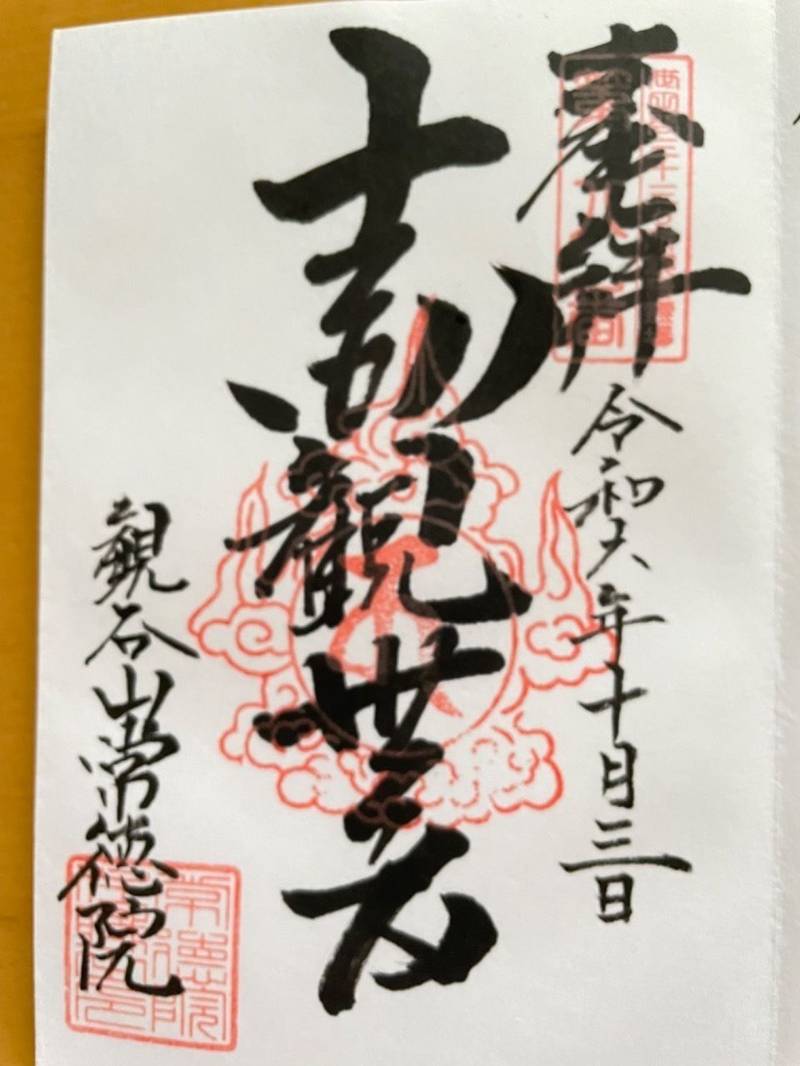 奉拝 令和六年十月三日
十一面観世音
観谷山常徳院